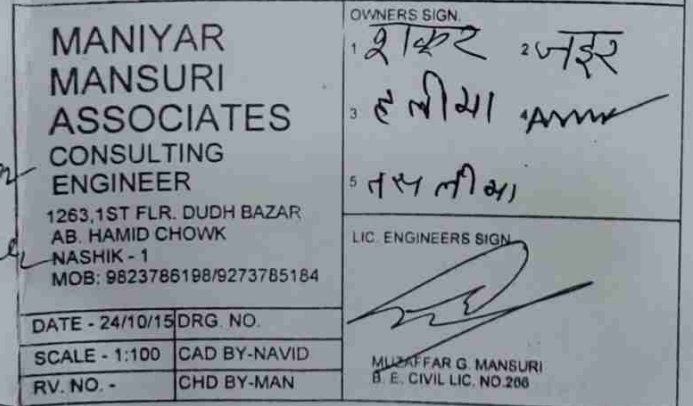 MANIYAR
MANSURI
ASSOCIATES
CONSULTING
ENGINEER
1263,1ST FLR. DUDH BAZAR
AB. HAMID CHOWK
NASHIK - 1
MOB: 9823786198/9273785184
DATE - 24/10/15 DRG. NO.
SCALE - 1:100 CAD BY-NAVID
RV. NO. - CHD BY-MAN
OWNERS SIGN.
1 शाकर 2 जईर
3 हलीमा 4
5 तसलीमा
LIC. ENGINEERS SIGN
MUZAFFAR G. MANSURI
B. E. CIVIL LIC. NO.266